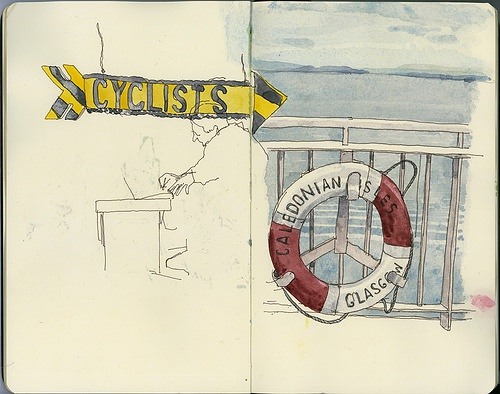 CYCLISTS
CALEDONIAN ISLES
GLASGOW